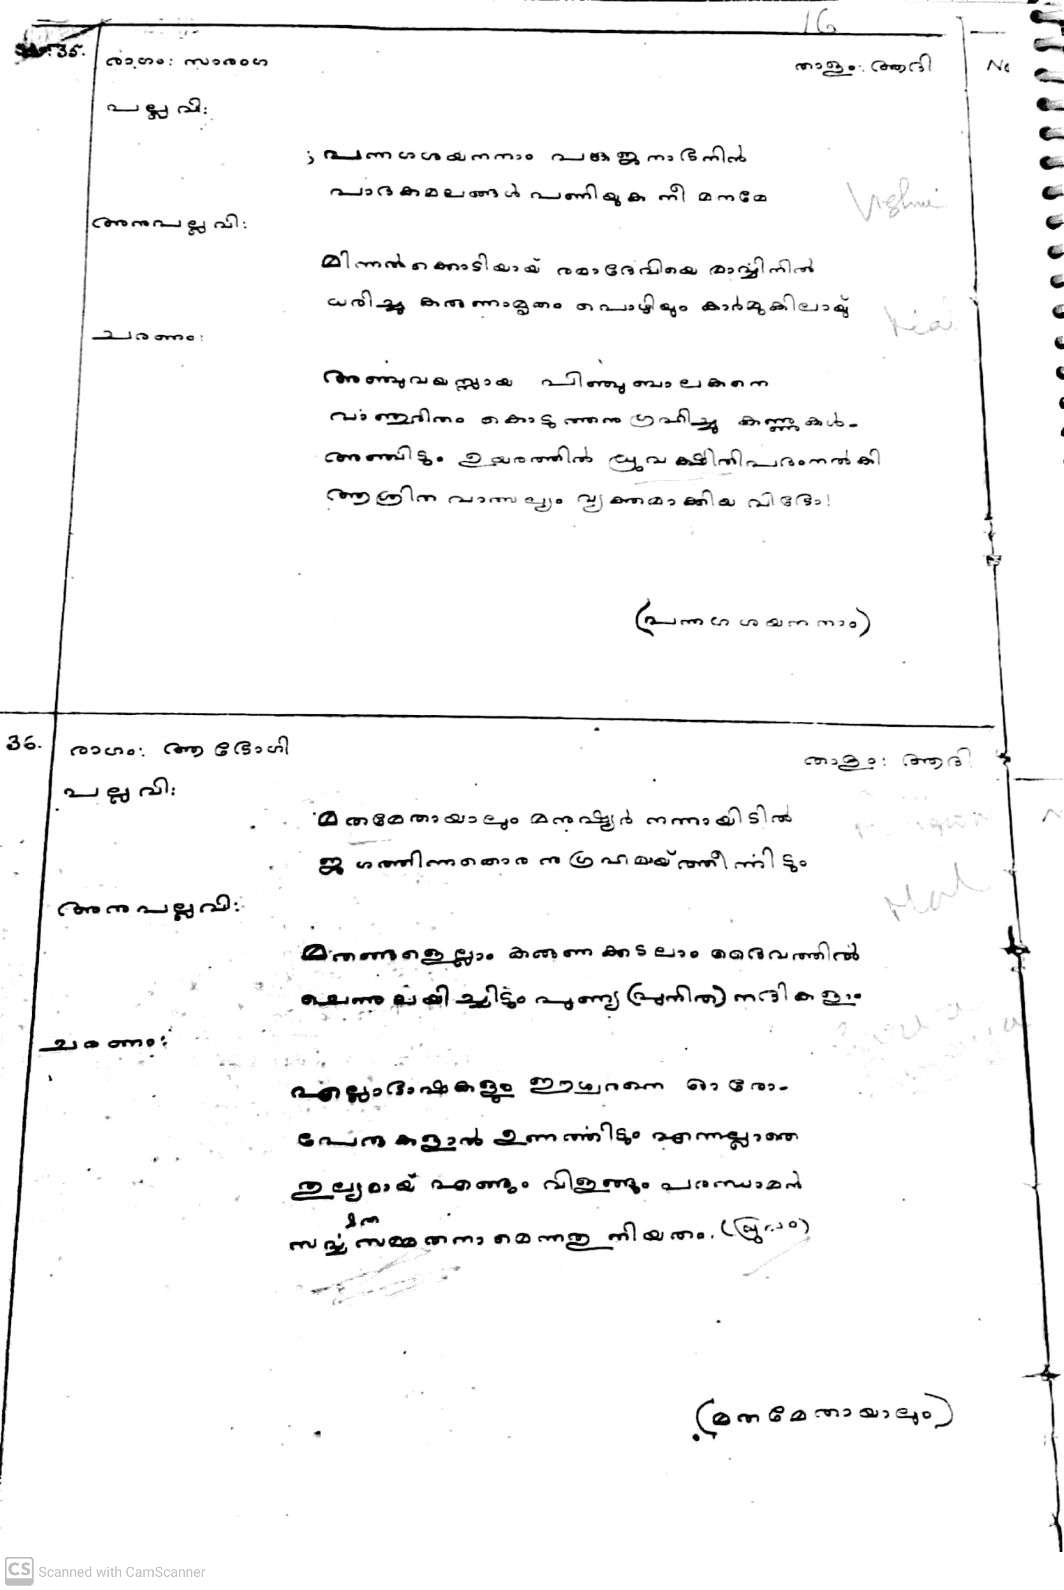 16
35. രാഗം: സാരംഗ താളം: ആദി No
പല്ലവി:
; പന്നഗശയനനാം പങ്കജനാഭനിൻ
പാദകമലങ്ങൾ പണിയുക നീ മനമേ
Vishnu
അനുപല്ലവി:
മിന്നൽക്കൊടിയായ് രമാദേവിയെ മാർവ്വിനിൽ
ധരിച്ചു കരുണാമൃതം പൊഴിയും കാർമുകിലായ്
ചരണം:
അഞ്ചുവയസ്സായ പിഞ്ചുബാലകനെ
വാഞ്ഛിതം കൊടുത്തനുഗ്രഹിച്ചു കണ്ണുകൾ-
അഞ്ചിട്ടും ഉയരത്തിൽ ധ്രുവക്ഷിതിപദംനൽകി
ആശ്രിത വാത്സല്യം വ്യക്തമാക്കിയ വിഭോ!
(പന്നഗശയനനാം)
36. രാഗം: ആഭോഗി താളം: ആദി
പല്ലവി:
മതമേതായാലും മനുഷ്യർ നന്നായിടിൽ
ജഗത്തിന്നതൊരനുഗ്രഹമായ്ത്തീർന്നിടും
അനുപല്ലവി:
മതങ്ങളെല്ലാം കരുണക്കടലാം ദൈവത്തിൽ
ചെന്നു ലയിച്ചിടും പുണ്യ (പുനിത) നദികളാം
ചരണം:
എല്ലാഭാഷകളും ഈശ്വരനെ ഓരോ-
പേരുകളാൽ ഉണർത്തിടും എന്നല്ലാതെ
തുല്യമായ് എങ്ങും വിളങ്ങും പരന്ധാമൻ
മത
സർവ്വ സമ്മതനാമെന്നതു നിയതം. (ധ്രുവം)
(മതമേതായാലും)
CS Scanned with CamScanner